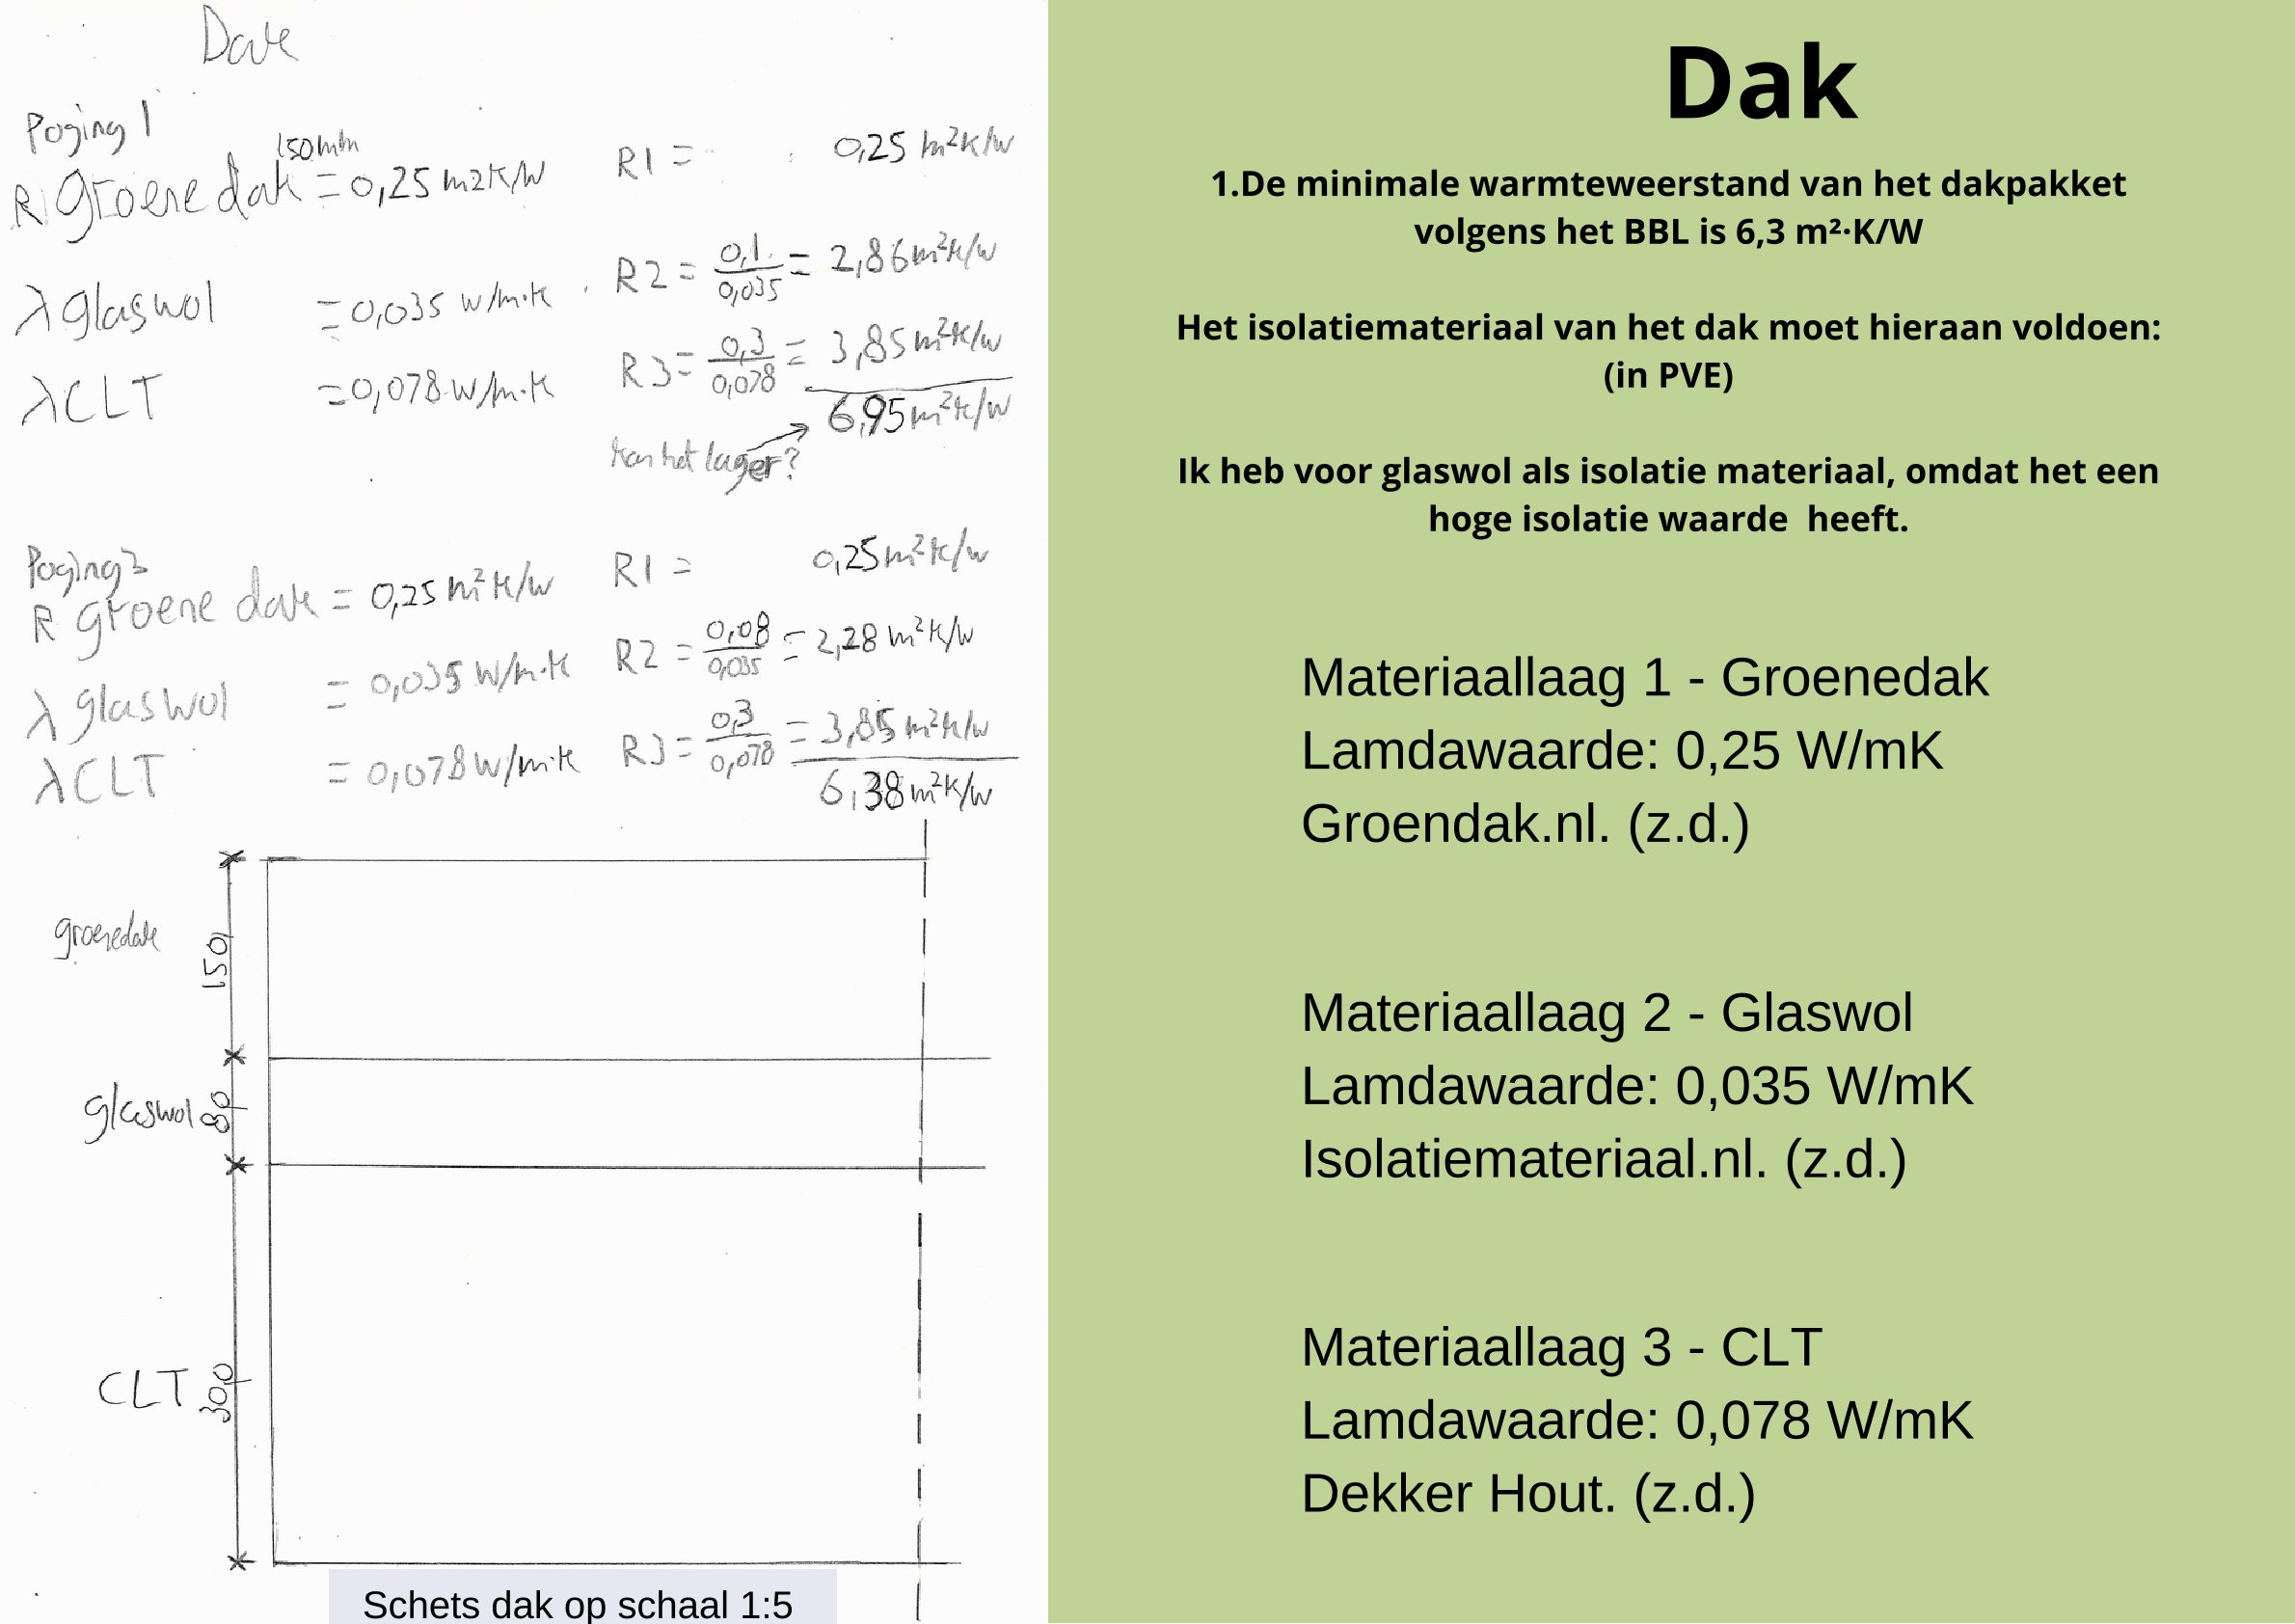 Dak
Poging 1
150mm
R groene dak = 0,25 m2K/W
λ glaswol = 0,035 W/m·K
λ CLT = 0,078 W/m·K
R1 = 0,25 m²K/W
R2 = 0,1 / 0,035 = 2,86 m²K/W
R3 = 0,3 / 0,078 = 3,85 m²K/W
6,95 m²K/W
Kan het lager?
Poging 2
R groene dak = 0,25 m²K/W
λ glaswol = 0,035 W/m·K
λ CLT = 0,078 W/m·K
R1 = 0,25 m²K/W
R2 = 0,08 / 0,035 = 2,28 m²K/W
R3 = 0,3 / 0,078 = 3,85 m²K/W
6,38 m²K/W
groenedak 150
glaswol 80
CLT 300
Schets dak op schaal 1:5
Dak
1.De minimale warmteweerstand van het dakpakket
volgens het BBL is 6,3 m²·K/W
Het isolatiemateriaal van het dak moet hieraan voldoen:
(in PVE)
Ik heb voor glaswol als isolatie materiaal, omdat het een
hoge isolatie waarde heeft.
Materiaallaag 1 - Groenedak
Lamdawaarde: 0,25 W/mK
Groendak.nl. (z.d.)
Materiaallaag 2 - Glaswol
Lamdawaarde: 0,035 W/mK
Isolatiemateriaal.nl. (z.d.)
Materiaallaag 3 - CLT
Lamdawaarde: 0,078 W/mK
Dekker Hout. (z.d.)